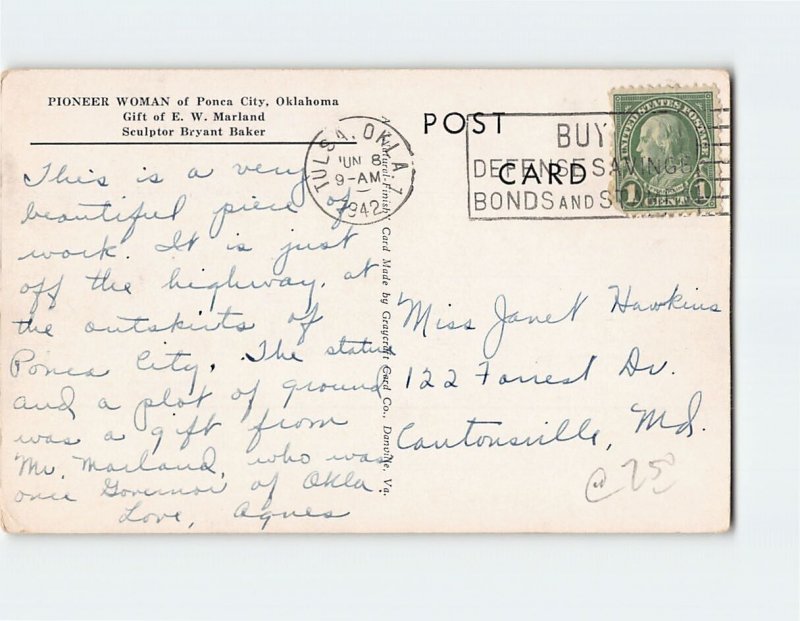 PIONEER WOMAN of Ponca City, Oklahoma
Gift of E. W. Marland
Sculptor Bryant Baker
This is a very
beautiful piece of
work. It is just
off the highway, at
the outskirts of
Ponca City. The statue
and a plot of ground
was a gift from
Mr. Marland, who was
once Governor of Okla.
Love, Agnes
A "Natural-Finish" Card Made by Graycraft Card Co., Danville, Va.
POST
CARD
TULSA, OKLA.
JUN 8
9-AM
1942
BUY
DEFENSE SAVINGS
BONDS AND S
UNITED STATES POSTAGE
1 CENT 1
Miss Janet Hawkins
122 Forrest Dr.
Cantonsville, Md.